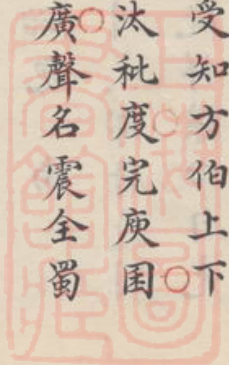 受知方伯上下
汰秕度完庾囷
廣聲名震全蜀